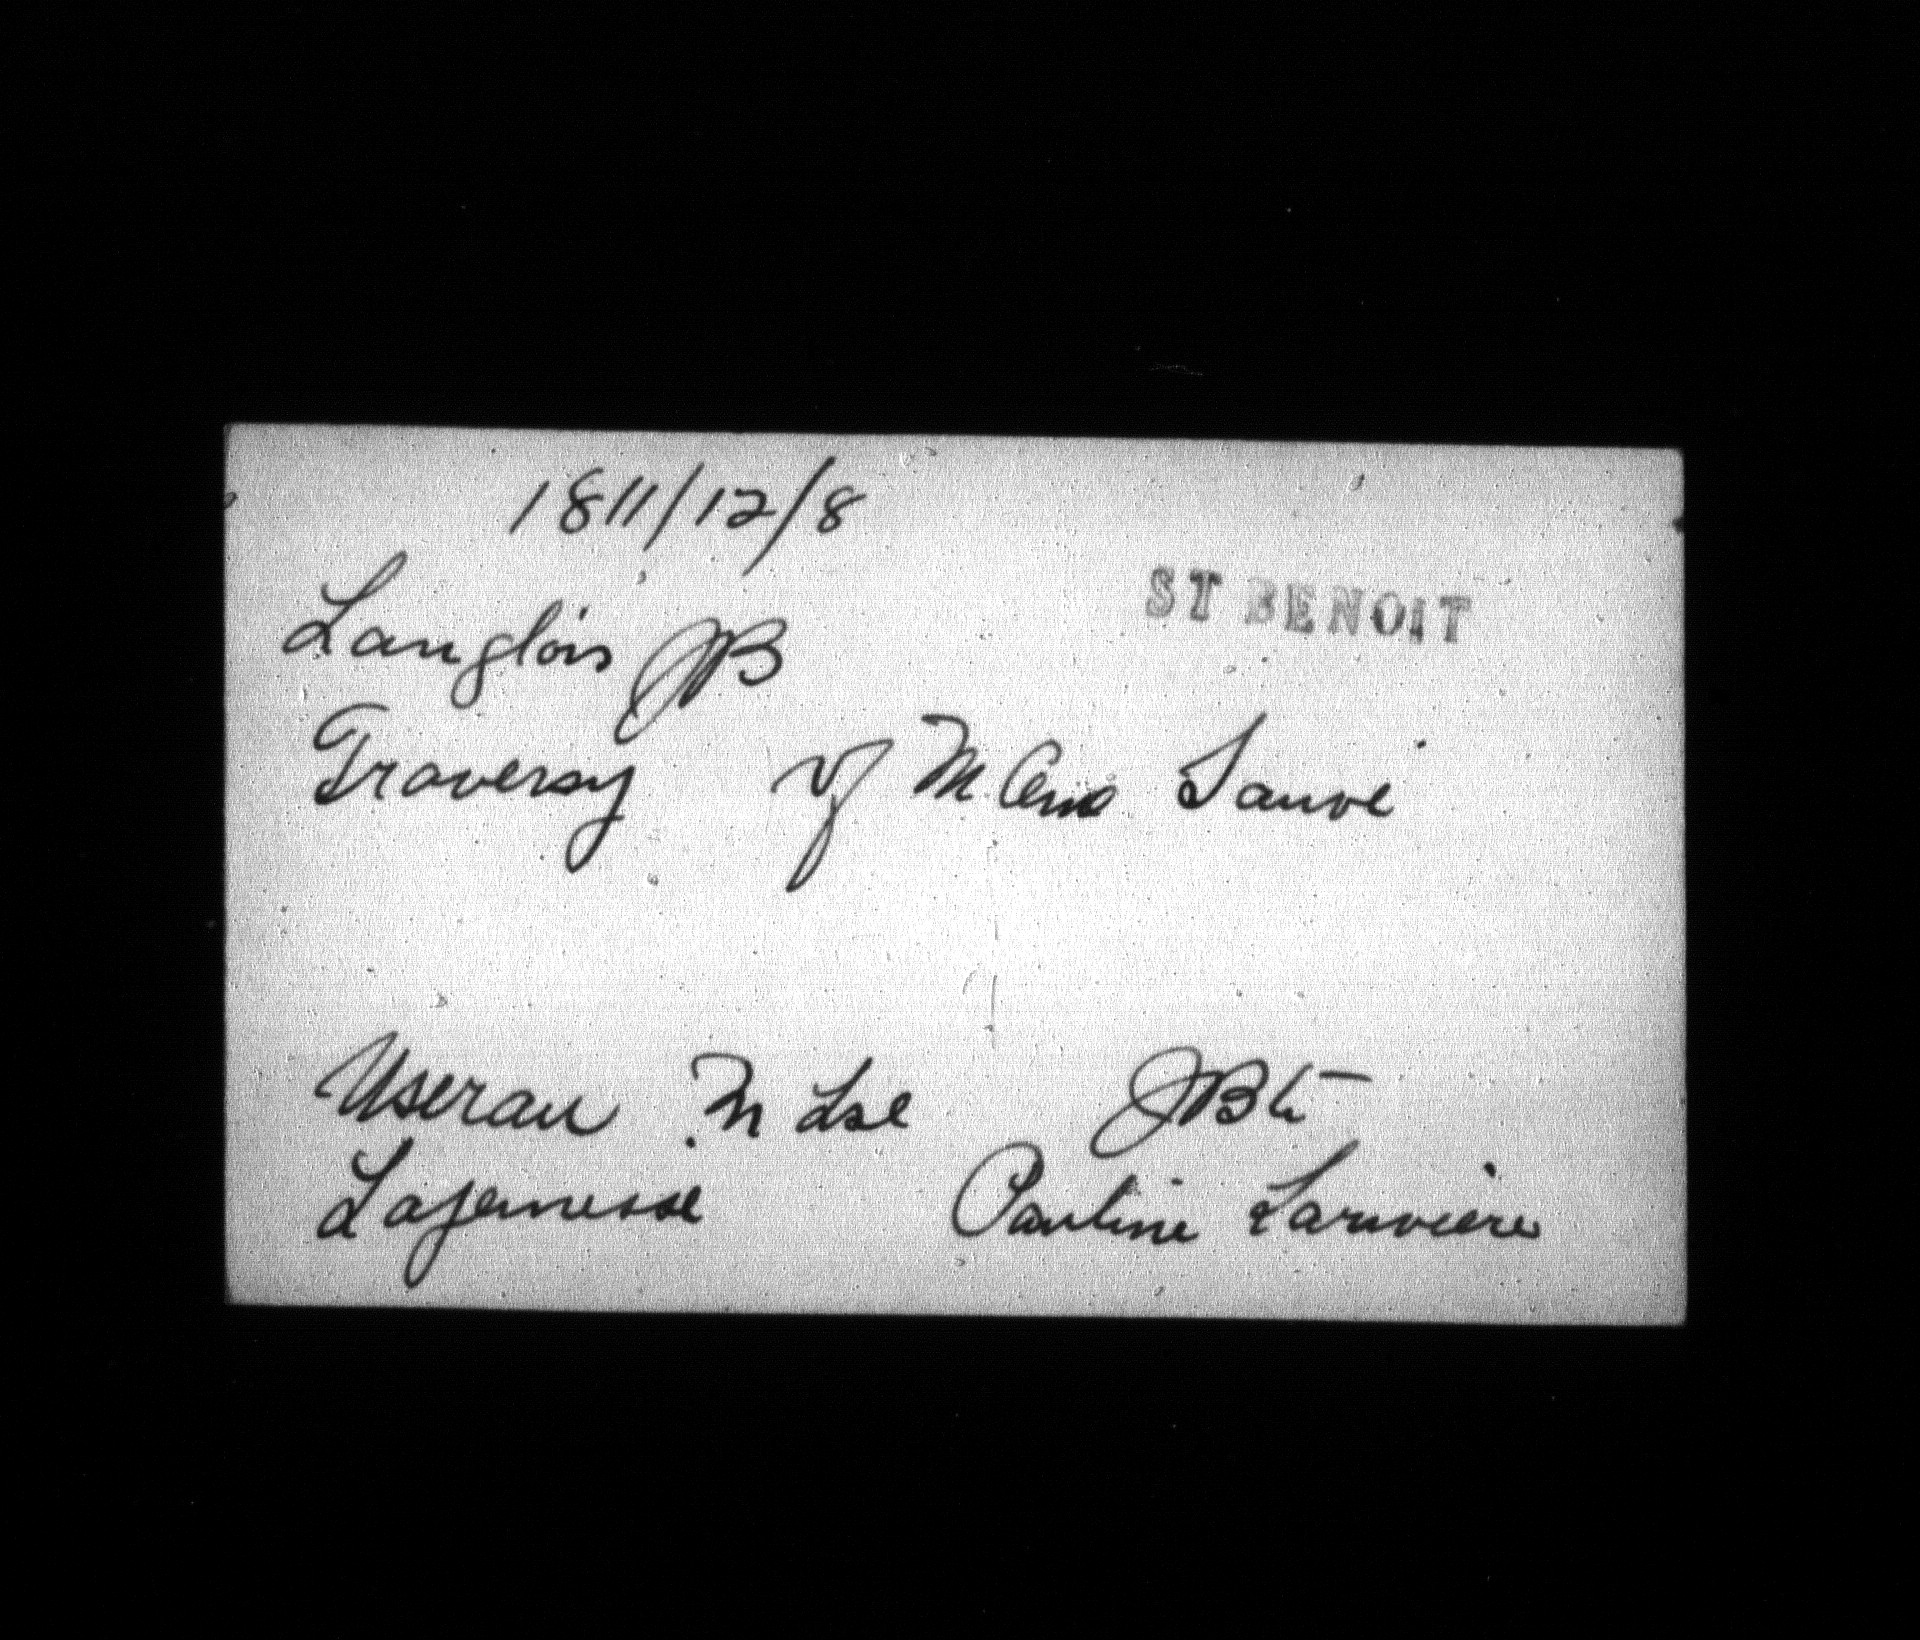 1811/12/8
ST BENOIT
Langlois JB
Traversy vf M Sauvé
Useran M Lse JBte
Lajeunesse Pauline Larivière